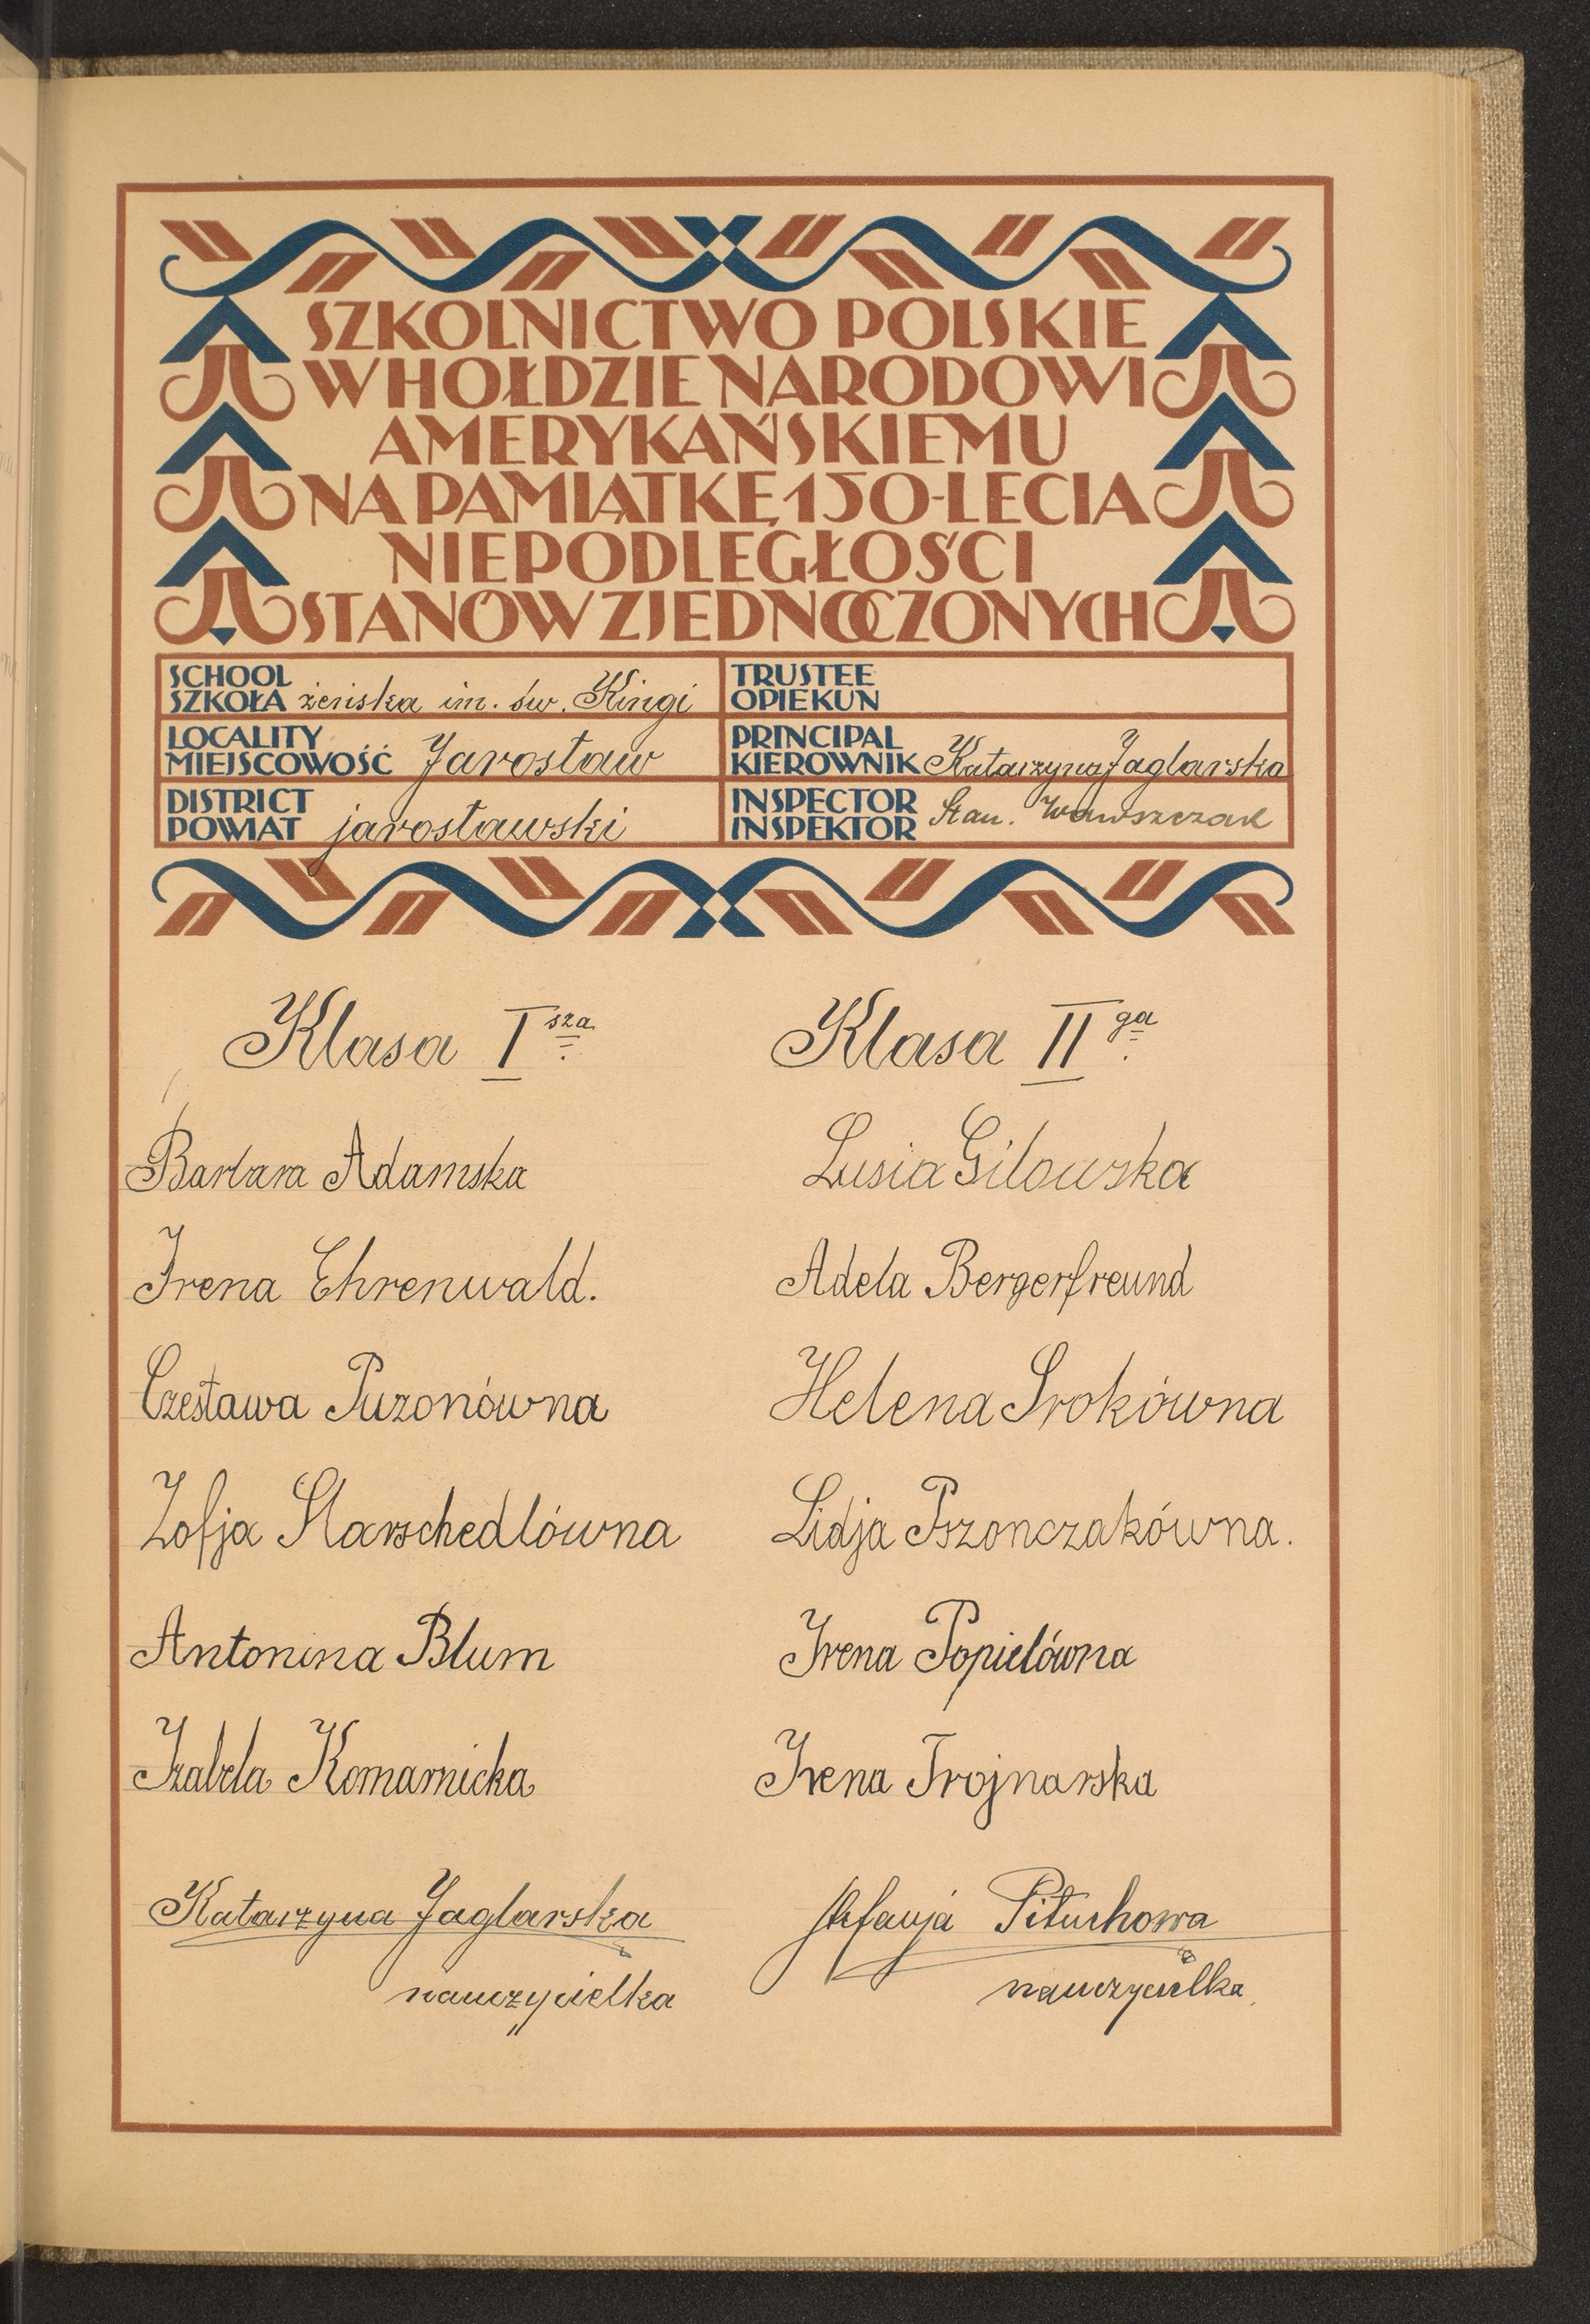 SZKOLNICTWO POLSKIE
W HOŁDZIE NARODOWI
AMERYKAŃSKIEMU
NA PAMIĄTKĘ 150-LECIA
NIEPODLEGŁOŚCI
STANÓW ZJEDNOCZONYCH
SCHOOL
SZKOŁA żeńska im. św. Kingi
TRUSTEE
OPIEKUN
LOCALITY
MIEJSCOWOŚĆ Jarosław
PRINCIPAL
KIEROWNIK Katarzyna Jaglarska
DISTRICT
POWIAT jarosławski
INSPECTOR
INSPEKTOR Stan. Wawszczak
Klasa I sza.
Barbara Adamska
Irena Ehrenwald.
Czesława Puzonówna
Zofja Starschedlówna
Antonina Blum
Izabela Komarnicka
Katarzyna Jaglarska
nauczycielka
Klasa II ga.
Lusia Gilowska
Adela Bergerfreund
Helena Srokówna
Lidja Pszonczakówna.
Irena Popielówna
Irena Trojnarska
Stefanja Pituchowa
nauczycielka